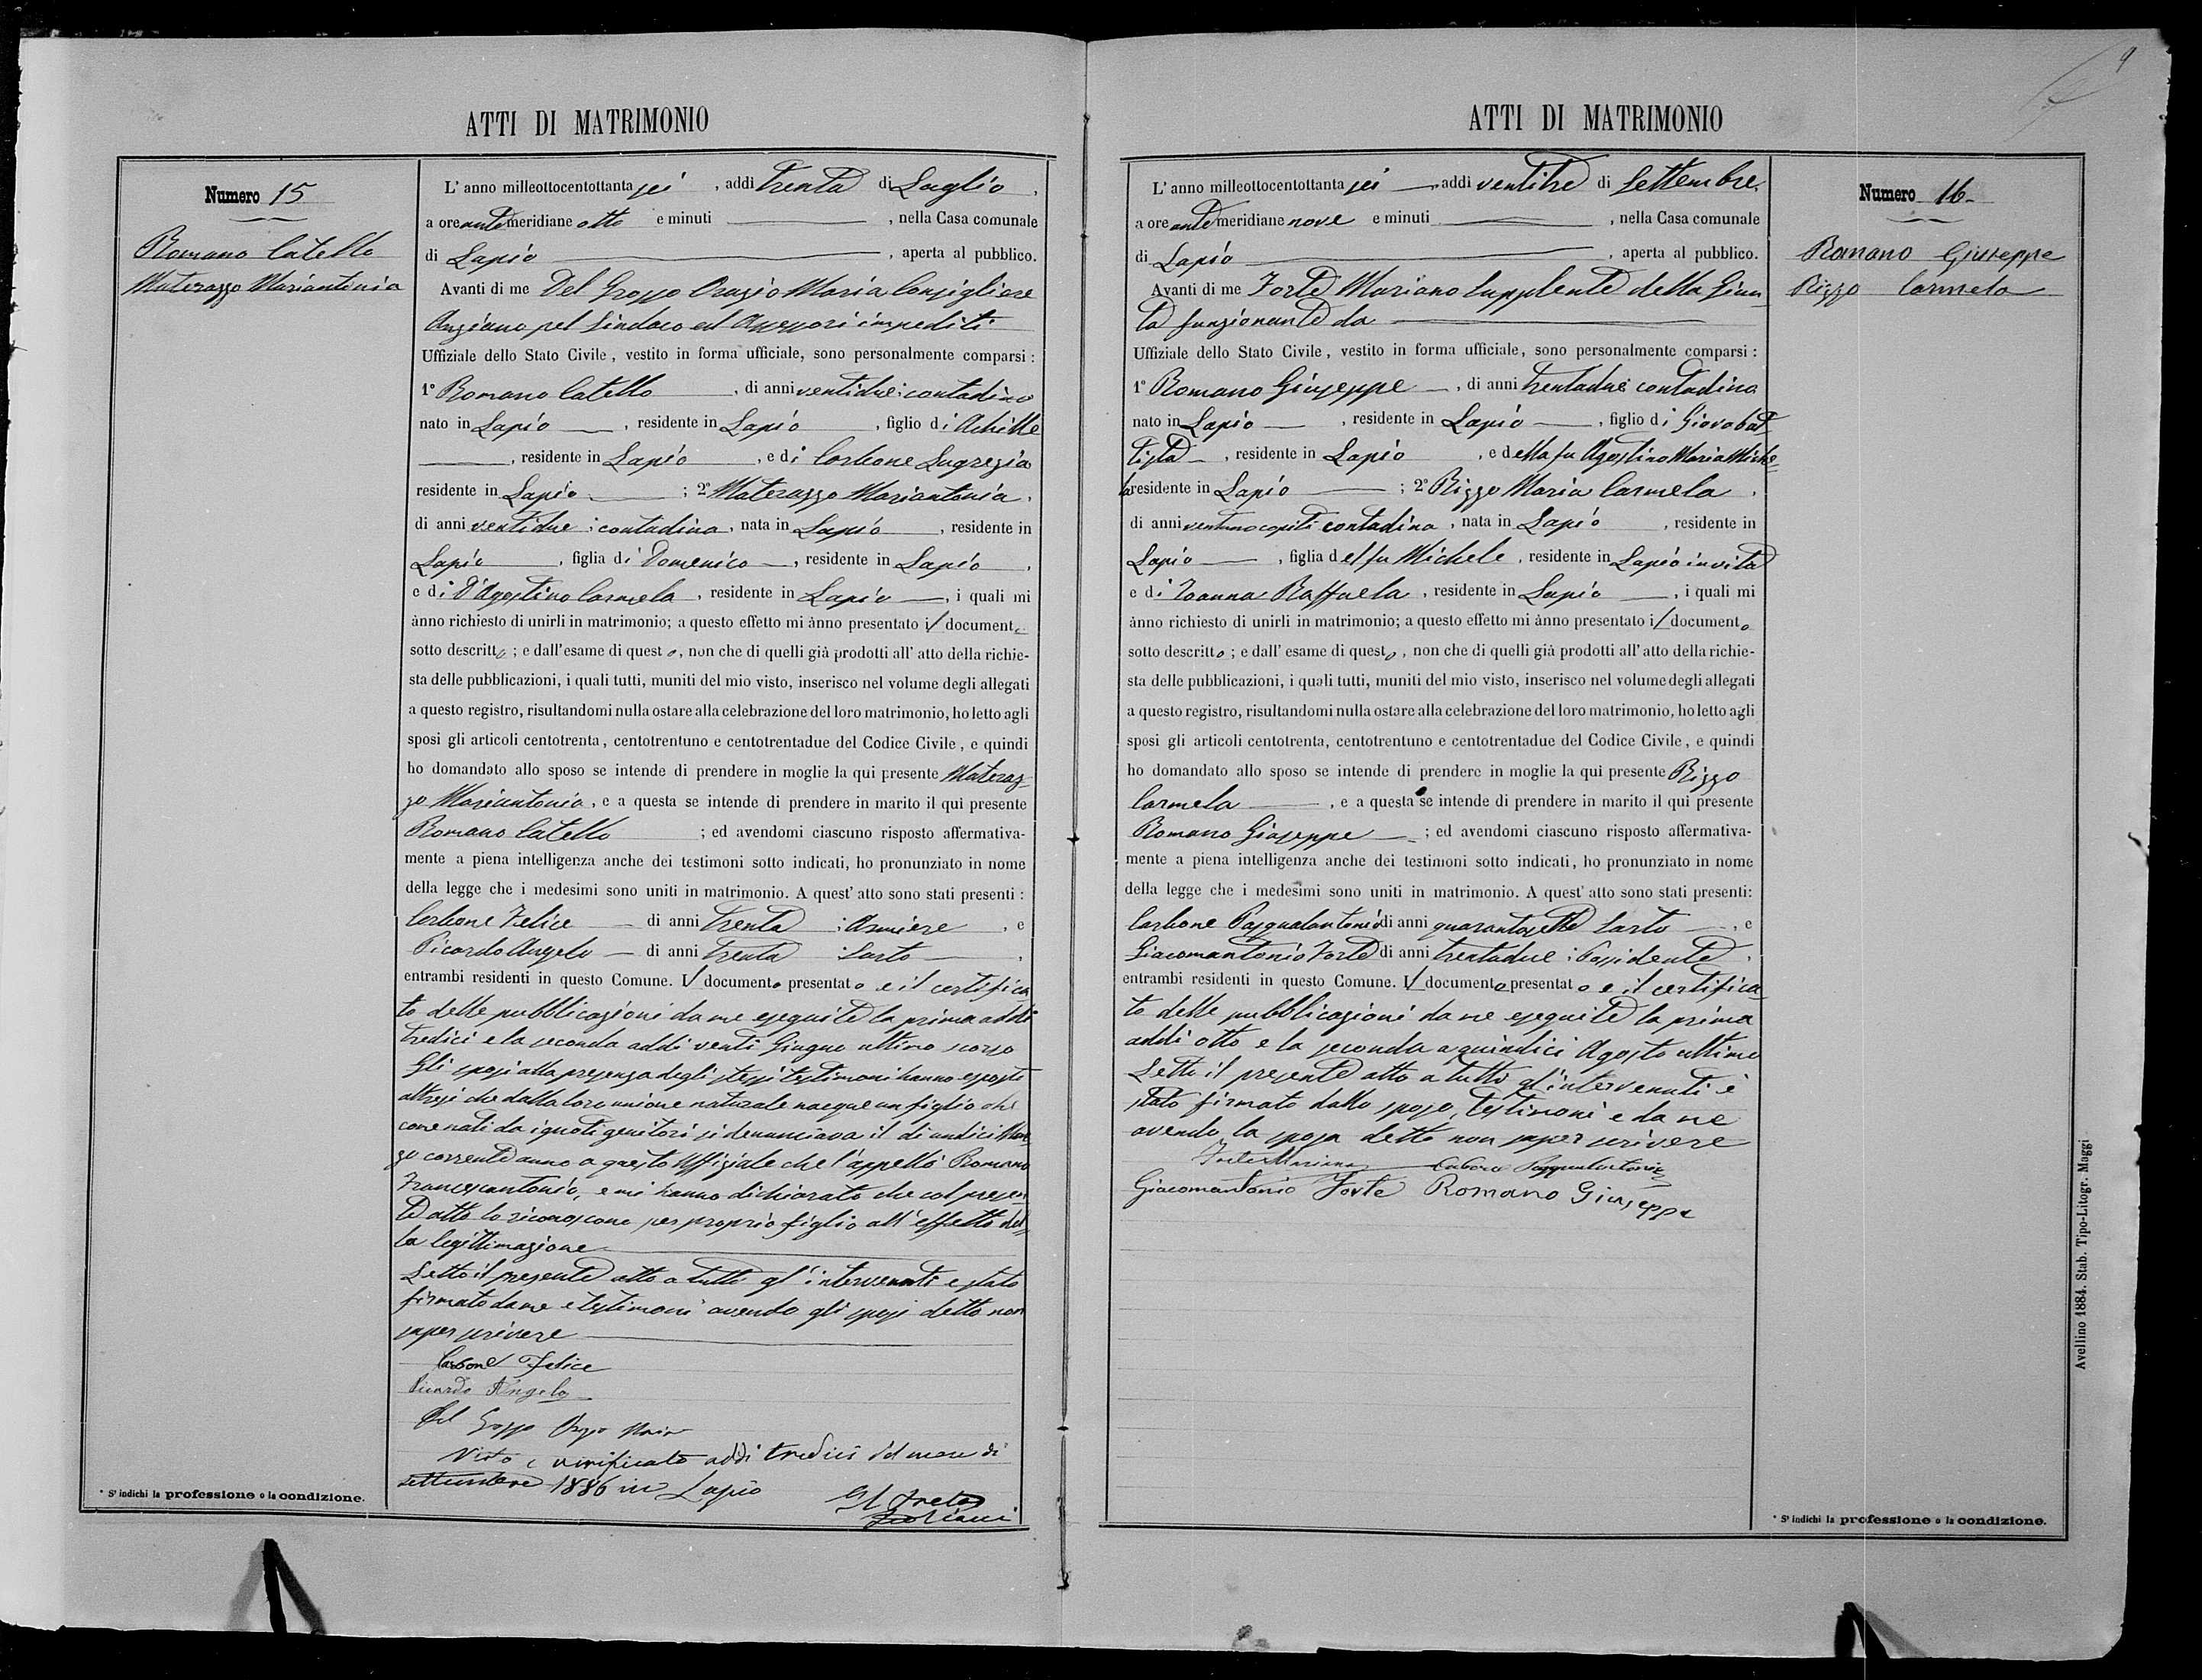 ATTI DI MATRIMONIO
Numero 15
Romano Catello
Materazzo Mariantonia
L' anno milleottocentottanta sei , addì trenta di Luglio ,
a ore antemeridiane otto e minuti , nella Casa comunale
di Lapio , aperta al pubblico.
Avanti di me Del Grosso Orazio Maria Consigliere
Anziano pel Sindaco ed Assessori impediti
Uffiziale dello Stato Civile , vestito in forma ufficiale, sono personalmente comparsi :
1° Romano Catello , di anni ventidue : contadino
nato in Lapio , residente in Lapio , figlio di Achille
, residente in Lapio , e di Carbone Lugrezia
residente in Lapio ; 2° Materazzo Mariantonia ,
di anni ventidue : contadina , nata in Lapio , residente in
Lapio , figlia di Domenico , residente in Lapio ,
e di D'Agostino Carmela , residente in Lapio , i quali mi
ànno richiesto di unirli in matrimonio; a questo effetto mi ànno presentato il documento
sotto descritto ; e dall' esame di questo , non che di quelli già prodotti all' atto della richie-
sta delle pubblicazioni, i quali tutti, muniti del mio visto, inserisco nel volume degli allegati
a questo registro, risultandomi nulla ostare alla celebrazione del loro matrimonio, ho letto agli
sposi gli articoli centotrenta , centotrentuno e centotrentadue del Codice Civile , e quindi
ho domandato allo sposo se intende di prendere in moglie la qui presente Materaz-
zo Mariantonia , e a questa se intende di prendere in marito il qui presente
Romano Catello ; ed avendomi ciascuno risposto affermativa-
mente a piena intelligenza anche dei testimoni sotto indicati, ho pronunziato in nome
della legge che i medesimi sono uniti in matrimonio. A quest' atto sono stati presenti :
Carbone Felice di anni trenta : Armiere , e
Picardo Angelo di anni trenta : Sarto ,
entrambi residenti in questo Comune. Il documento presentato e il certifica
to delle pubblicazioni da me eseguite la prima addì
tredici e la seconda addì venti Giugno ultimo scorso
Gli sposi alla presenza degli stessi testimoni hanno esposto
altresì che dalla loro unione naturale nacque un figlio che
come nati da ignoti genitori si denunciava il dì undici Mar-
zo corrente anno a questo Uffiziale che l'appellò Romano
Francescantonio, e mi hanno dichiarato che col presen
te atto lo riconoscono per proprio figlio all'effetto del-
la legittimazione
Letto il presente atto a tutti gl'intervenuti e stato
firmato da me e testimoni avendo gli sposi detto non
saper scrivere
Carbone Felice
Picardo Angelo
Del Grosso Orazio Maria
Visto e verificato addì tredici del mese di
settembre 1886 in Lapio
* Si indichi la professione o la condizione.
ATTI DI MATRIMONIO
9
Numero 16
Romano Giuseppe
Rizzo Carmela
L' anno milleottocentottanta sei , addì ventitre di Settembre,
a ore antemeridiane nove e minuti , nella Casa comunale
di Lapio , aperta al pubblico.
Avanti di me Forte Mariano Supplente della Giun
ta funzionante da
Uffiziale dello Stato Civile , vestito in forma ufficiale, sono personalmente comparsi :
1° Romano Giuseppe , di anni trentadue contadino
nato in Lapio , residente in Lapio , figlio di Giovabat-
tista , residente in Lapio , e della fu Agostino Maria Miche-
la residente in Lapio ; 2° Rizzo Maria Carmela ,
di anni ventuno compiti contadina , nata in Lapio , residente in
Lapio , figlia del fu Michele , residente in Lapio in vita
e di Ioanna Raffaela , residente in Lapio , i quali mi
ànno richiesto di unirli in matrimonio; a questo effetto mi ànno presentato il documento
sotto descritto ; e dall' esame di questo , non che di quelli già prodotti all' atto della richie-
sta delle pubblicazioni, i quali tutti, muniti del mio visto, inserisco nel volume degli allegati
a questo registro, risultandomi nulla ostare alla celebrazione del loro matrimonio, ho letto agli
sposi gli articoli centotrenta, centotrentuno e centotrentadue del Codice Civile , e quindi
ho domandato allo sposo se intende di prendere in moglie la qui presente Rizzo
Carmela , e a questa se intende di prendere in marito il qui presente
Romano Giuseppe ; ed avendomi ciascuno risposto affermativa-
mente a piena intelligenza anche dei testimoni sotto indicati, ho pronunziato in nome
della legge che i medesimi sono uniti in matrimonio. A quest' atto sono stati presenti:
Carbone Pasqualantonio di anni quarantasette Sarto , e
Giacomantonio Forte di anni trentadue : Possidente ,
entrambi residenti in questo Comune. Il documento presentato e il certifica
to delle pubblicazioni da me eseguite la prima
addì otto e la seconda a quindici Agosto ultimo
Letto il presente atto a tutti gl'intervenuti è
stato firmato dallo sposo, testimoni e da me
avendo la sposa detto non saper scrivere
Forte Mariano Carbone Pasqualantonio
Giacomantonio Forte Romano Giuseppe
* Si indichi la professione o la condizione.
Avellino 1884. Stab. Tipo-Litogr. Maggi